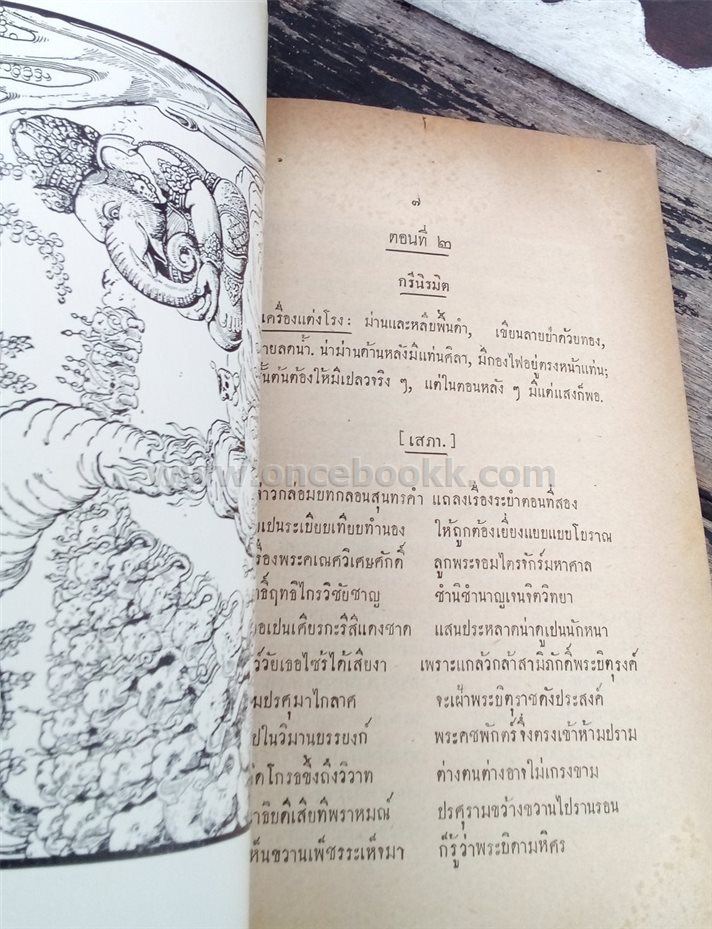 ๗
ตอนที่ ๒
กรีนิรมิต
เครื่องแต่งโรง: ม่านและหลืบพื้นดำ, เขียนลายยำด้วยทอง,
ายลดน้ำ. น่าม่านด้านหลังมีแท่นศิลา, มีกองไฟอยู่ตรงหน้าแท่น;
ั้นต้นต้องให้มีเปลวจริง ๆ, แต่ในตอนหลัง ๆ มีแต่แสงก็พอ.
[เสภา.]
www.oncebookk.com
กล่อมบทกลอนสุนทรคำ แถลงเรื่องระบำตอนที่สอง
เปนระเบียบเทียบทำนอง ให้ถูกต้องเยี่ยงแบบแบบโบราณ
รื่องพระคเณศวิเศษศักดิ์ ลูกพระจอมไตรจักร์มหาศาล
ทธิ์ฤทธิไกรวิชัยชาญ ชำนิชำนาญเจนจิตวิทยา
อเปนเศียรกะรีสีแดงชาด แสนประหลาดน่าดูเปนนักหนา
ว์วัยเธอไซร้ได้เสียงา เพราะแกล้วกล้าสามิภักดิ์พระบิตุรงค์
มปรศุมาไกลาศ จะเฝ้าพระบิตุราชดังประสงค์
ปในวิมานบรรยงก์ พระคชพักตร์จึ่งตรงเข้าห้ามปราม
ดโกรธขึ้งถึงวิวาท ต่างตนต่างอาจไม่เกรงขาม
าธิบดีเสียทีพราหมณ์ ปรศุรามขว้างขวานไปรานรอน
ห็นขวานเพ็ชรระเห็จมา ก็รู้ว่าพระบิดามหิศร